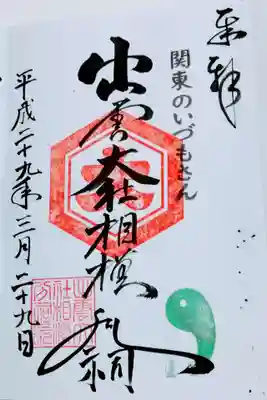 奉拝
関東のいづもさん
出雲大社相模分祠
平成二十九年三月二十九日